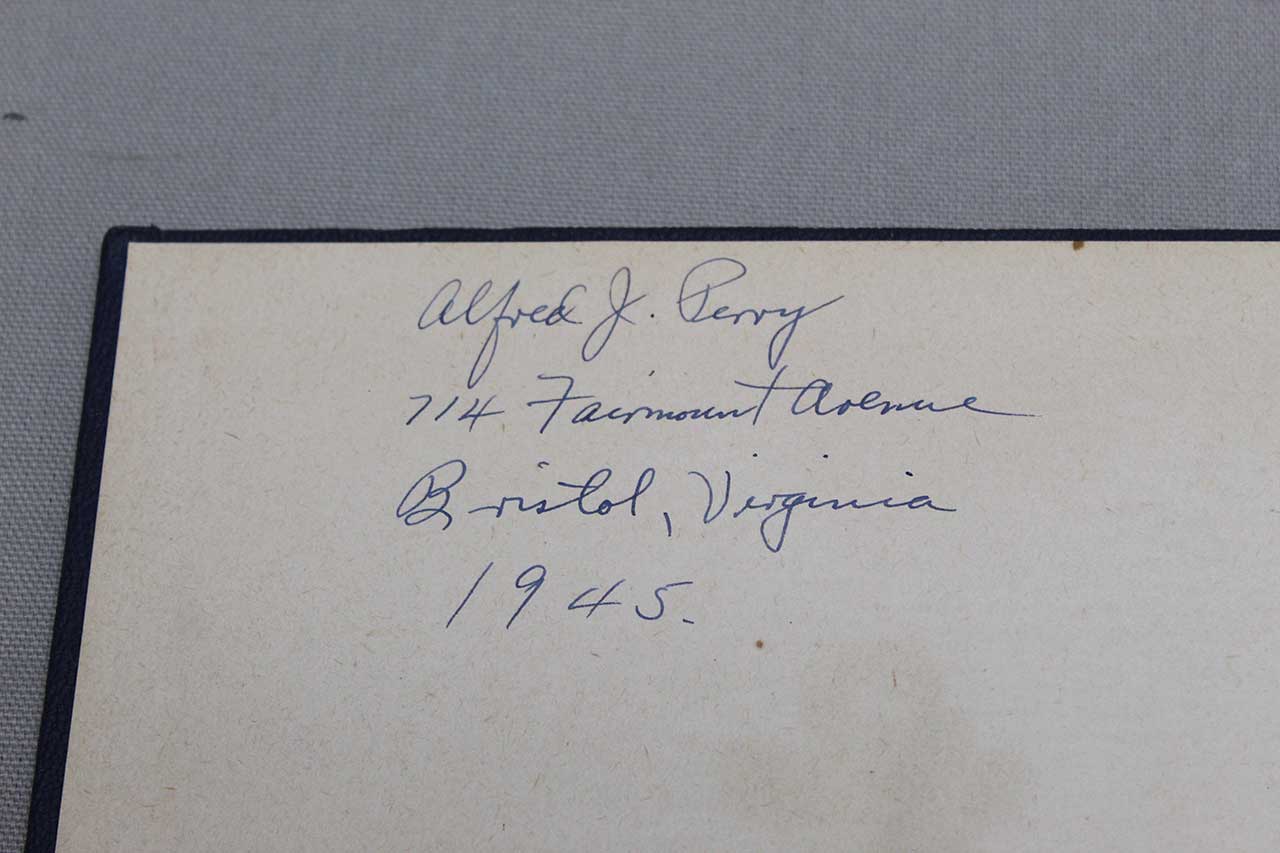 Alfred J. Perry
714 Fairmount Avenue
Bristol, Virginia
1945.